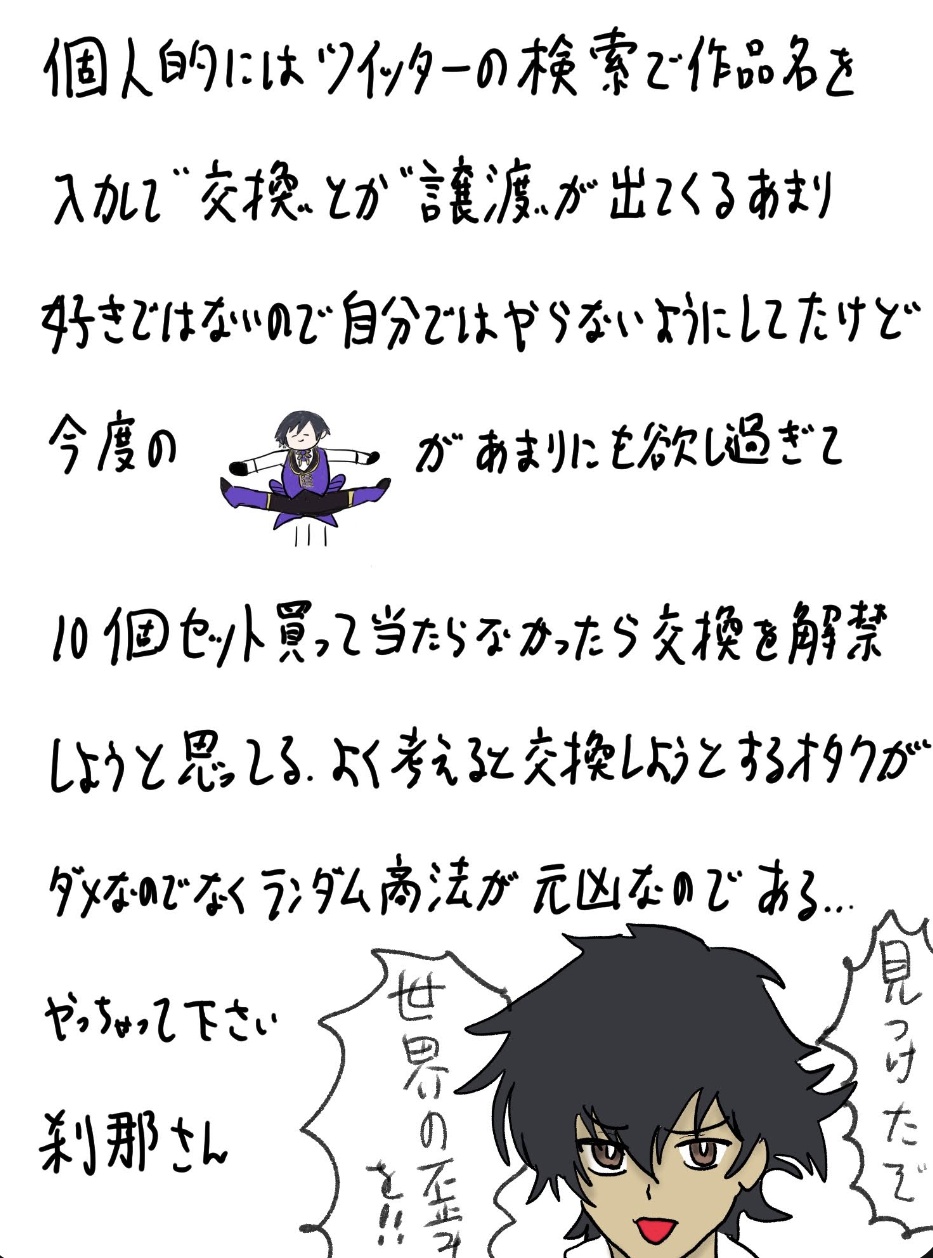 個人的にはツイッターの検索で作品名を
入力して"交換"とか"譲渡"が出てくるあまり
好きではないので自分ではやらないようにしてたけど
今度の が あまりにも欲し過ぎて
10個セット買って当たらなかったら交換を解禁
しようと思ってる.よく考えると交換しようとするオタクが
ダメなのでなくランダム商法が元凶なのである...
やっちゃって下さい
刹那さん
見つけたぞ
世界の歪み
を!!